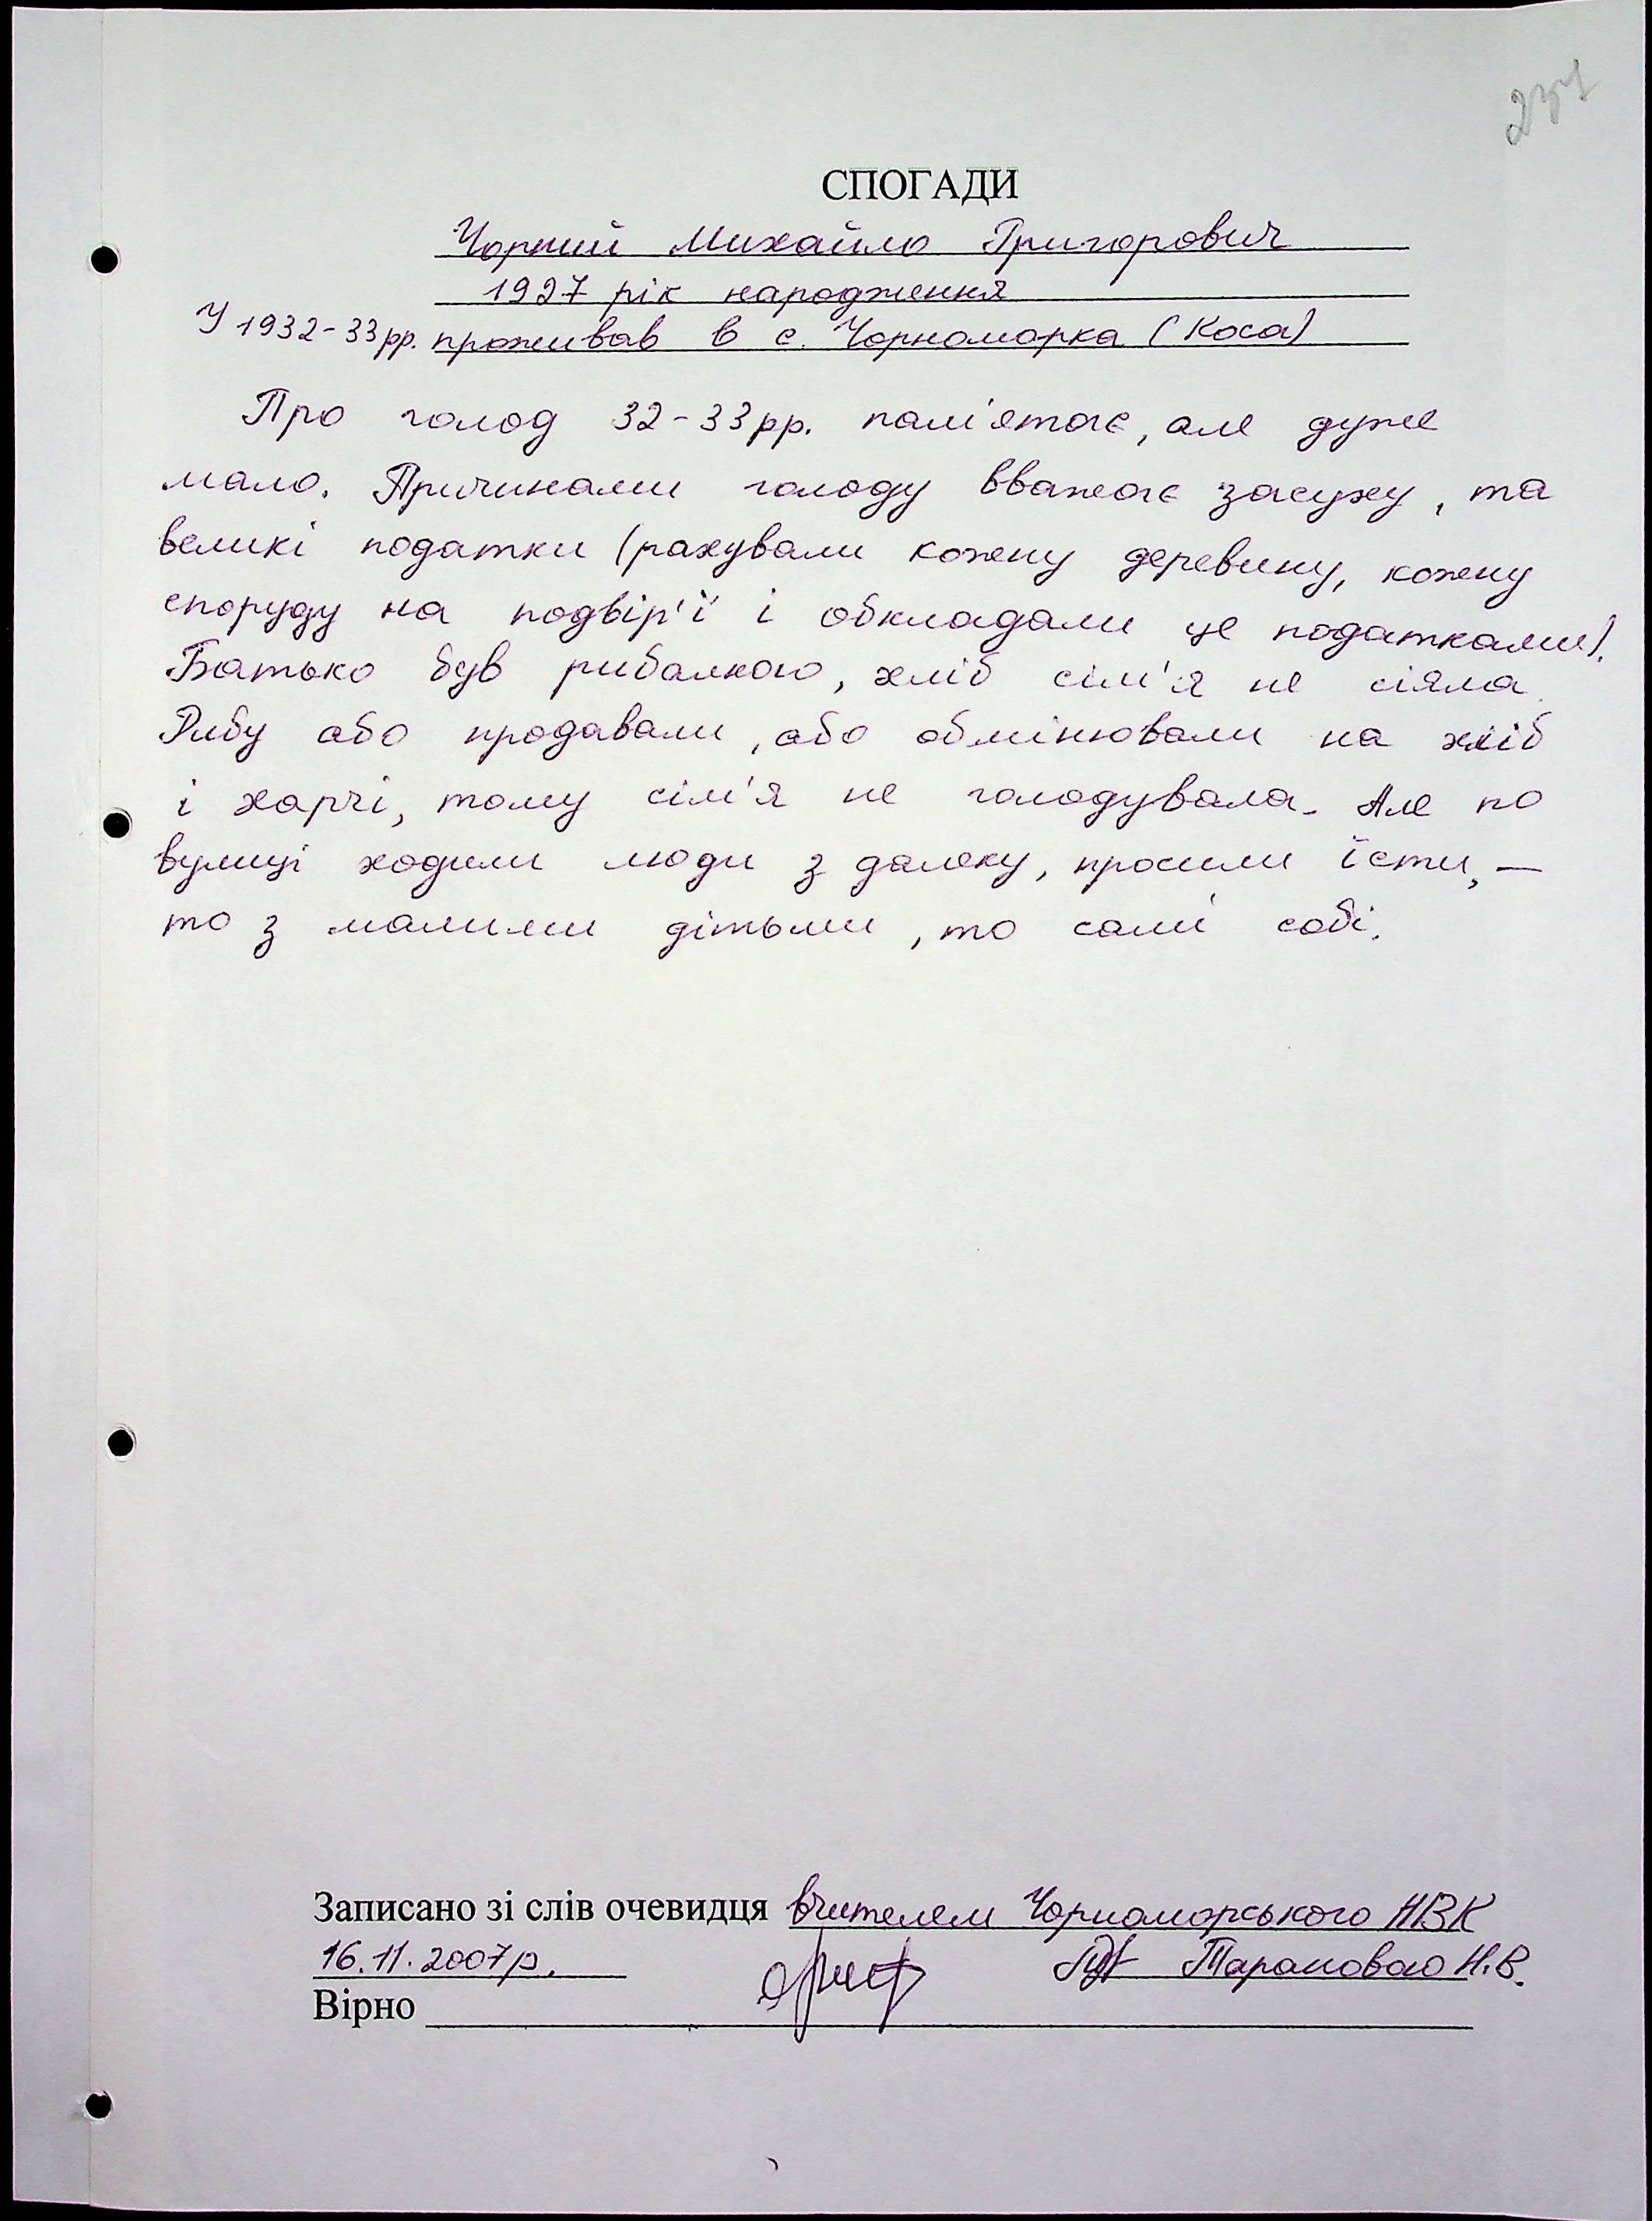 237
СПОГАДИ
Чорний Михайло Григорович
1927 рік народження
У 1932-33рр. проживав в с. Чорноморка (Коса)
Про голод 32-33рр. пам'ятає, але дуже
мало. Причинами голоду вважає засуху, та
великі податки (рахували кожну деревину, кожну
споруду на подвір'ї і обкладали це податками).
Батько був рибалкою, хліб сім'я не сіяла.
Рибу або продавали, або обмінювали на хліб
і харчі, тому сім'я не голодувала. Але по
вулиці ходили люди з далеку, просили їсти, —
то з малими дітьми, то самі собі.
Записано зі слів очевидця вчителем Чорноморського НВК
16.11.2007р. Тарановою Н.В.
Вірно